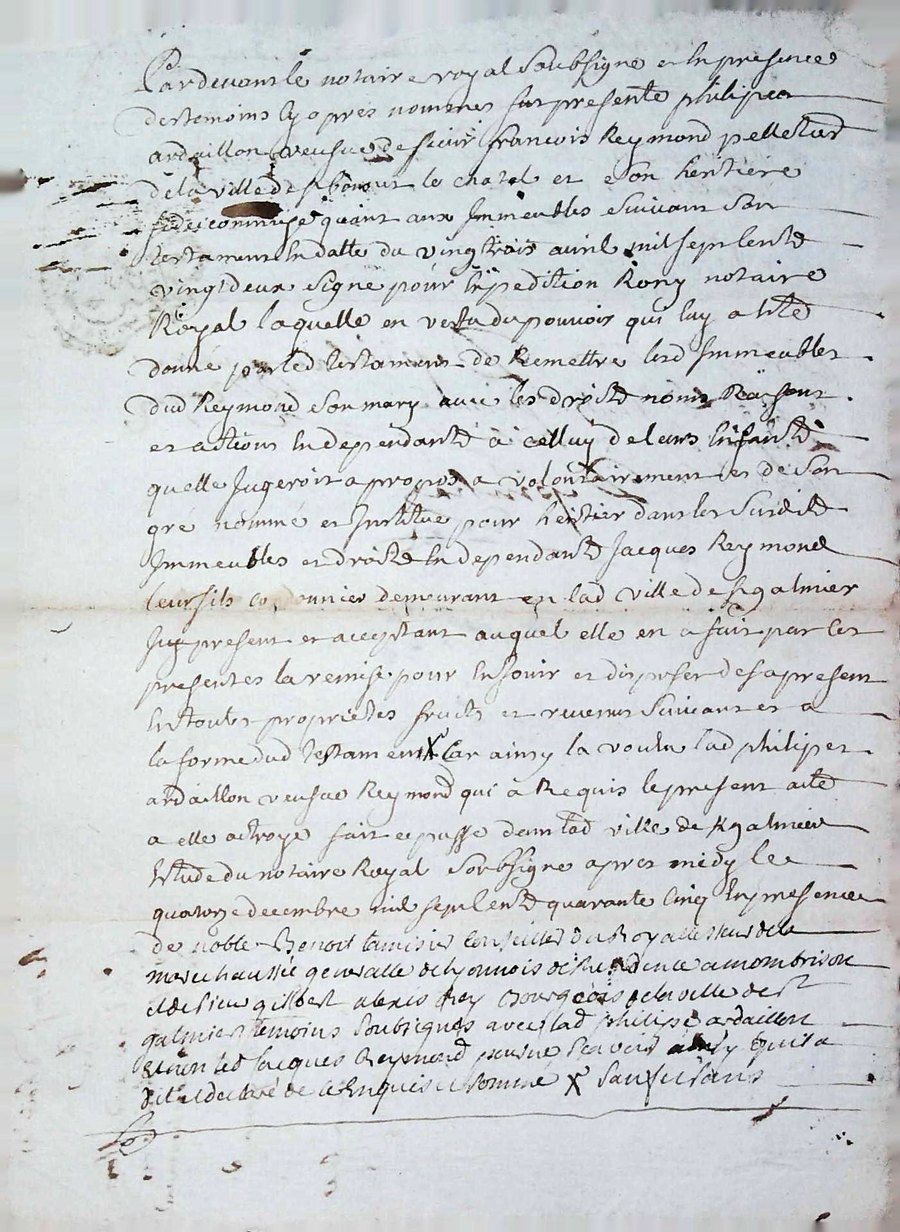 Pardevant le notaire royal Soubsigne et En presence
des temoins Cy apres nommes fut presente philipes
ardaillon veufve de sieur francois Reymond pelletier
de la ville de St bonnet le chatel et son heritiere
fideicommise quant aux Immeubles Suivant son
testament En datte du vingt trois avril mil sept Cents
vingt deux Signe pour Expedition Rony notaire
Royal laquelle en vertu du pouvoir qui luy a Eté
donné par led testament de Remettre lesd Immeubles
dud Reymond son mary avec les droits noms Raisons
et actions En dependants à celluy de leurs Enfants
quelle Jugeroit a propos a volontairement et de son
gré nommé et Institué pour heritier dans les Susdits
Immeubles et droits En dependants Jacques Reymond
leur fils cordonnier demeurant en lad ville de St galmier
Icy present et acceptant auquel elle en a fait par les
presentes la remise pour En Jouir et disposer des a present
En toutes proprietes fruits et revenus Suivant et a
la forme dud testament X Car ainsy la voulu lad philipes
ardaillon veufve Reymond qui à Requis le present acte
a elle octroye fait et passe dans lad ville de St galmier
Etude du notaire Royal Soubsigne apres midy le
quatorze decembre mil sept Cents quarante Cinq En presence
de noble Benoit tamisier Conseiller du Roy assesseur de la
marechaussée generalle de lyonnois de Residence a montbrison
et de sieur gilbert alexis Rey Bourgeois de la ville de St
galmier temoins Soubsignes avec lad philipe ardaillon
et non led Jacques Reymond pour ne scavoir ainsy quil a
dit et declaré de ce Enquis et sommé X Sauf usans